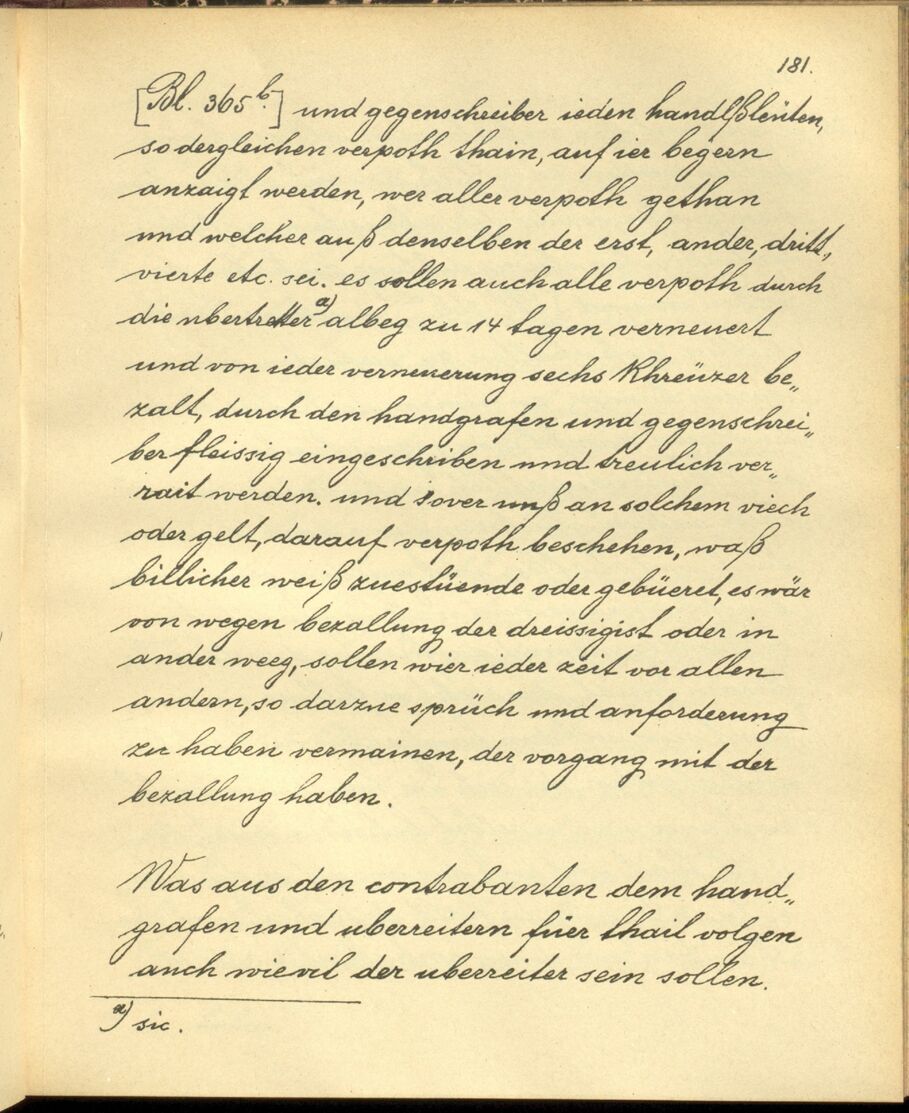 181.
[Bl. 365 b.] und gegenschreiber ieden handlßleüten,
so dergleichen verpoth thain, auf ier begern
anzaigt werden, wer aller verpoth gethan
und welcher auß denselben der erst, ander, dritt,
vierte etc. sei. es sollen auch alle verpoth durch
die ubertretter a) albeg zu 14 tagen verneuert
und von ieder verneuerung sechs Khreüzer be„
zalt, durch den handgrafen und gegenschrei„
ber fleissig eingeschriben und treulich ver„
rait werden. und sover unß an solchem viech
oder gelt, darauf verpoth beschehen, waß
billicher weiß zuestüende oder gebüeret, es wär
von wegen bezallung der dreissigist oder in
ander weeg, sollen wier ieder zeit vor allen
andern, so darzue sprüch und anforderung
zu haben vermainen, der vorgang mit der
bezallung haben.
Was aus den contrabanten dem hand„
grafen und uberreitern füer thail volgen
auch wievil der uberreiter sein sollen.
a) sic.